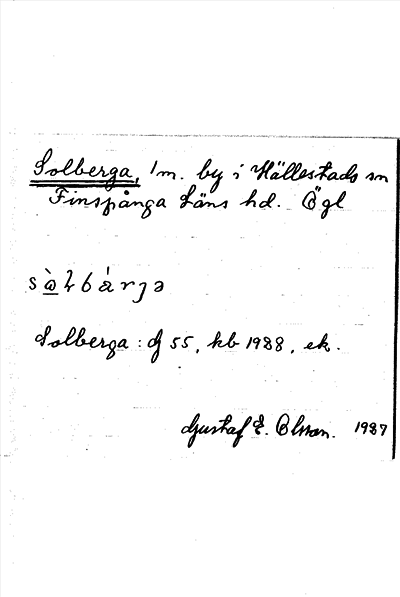 Solberga, 1 m. by i Hällestads sn
Finspånga läns hd. Ögl
Solberga: J 55, kb 1988, ek.
Gustaf E. Olsson. 1987